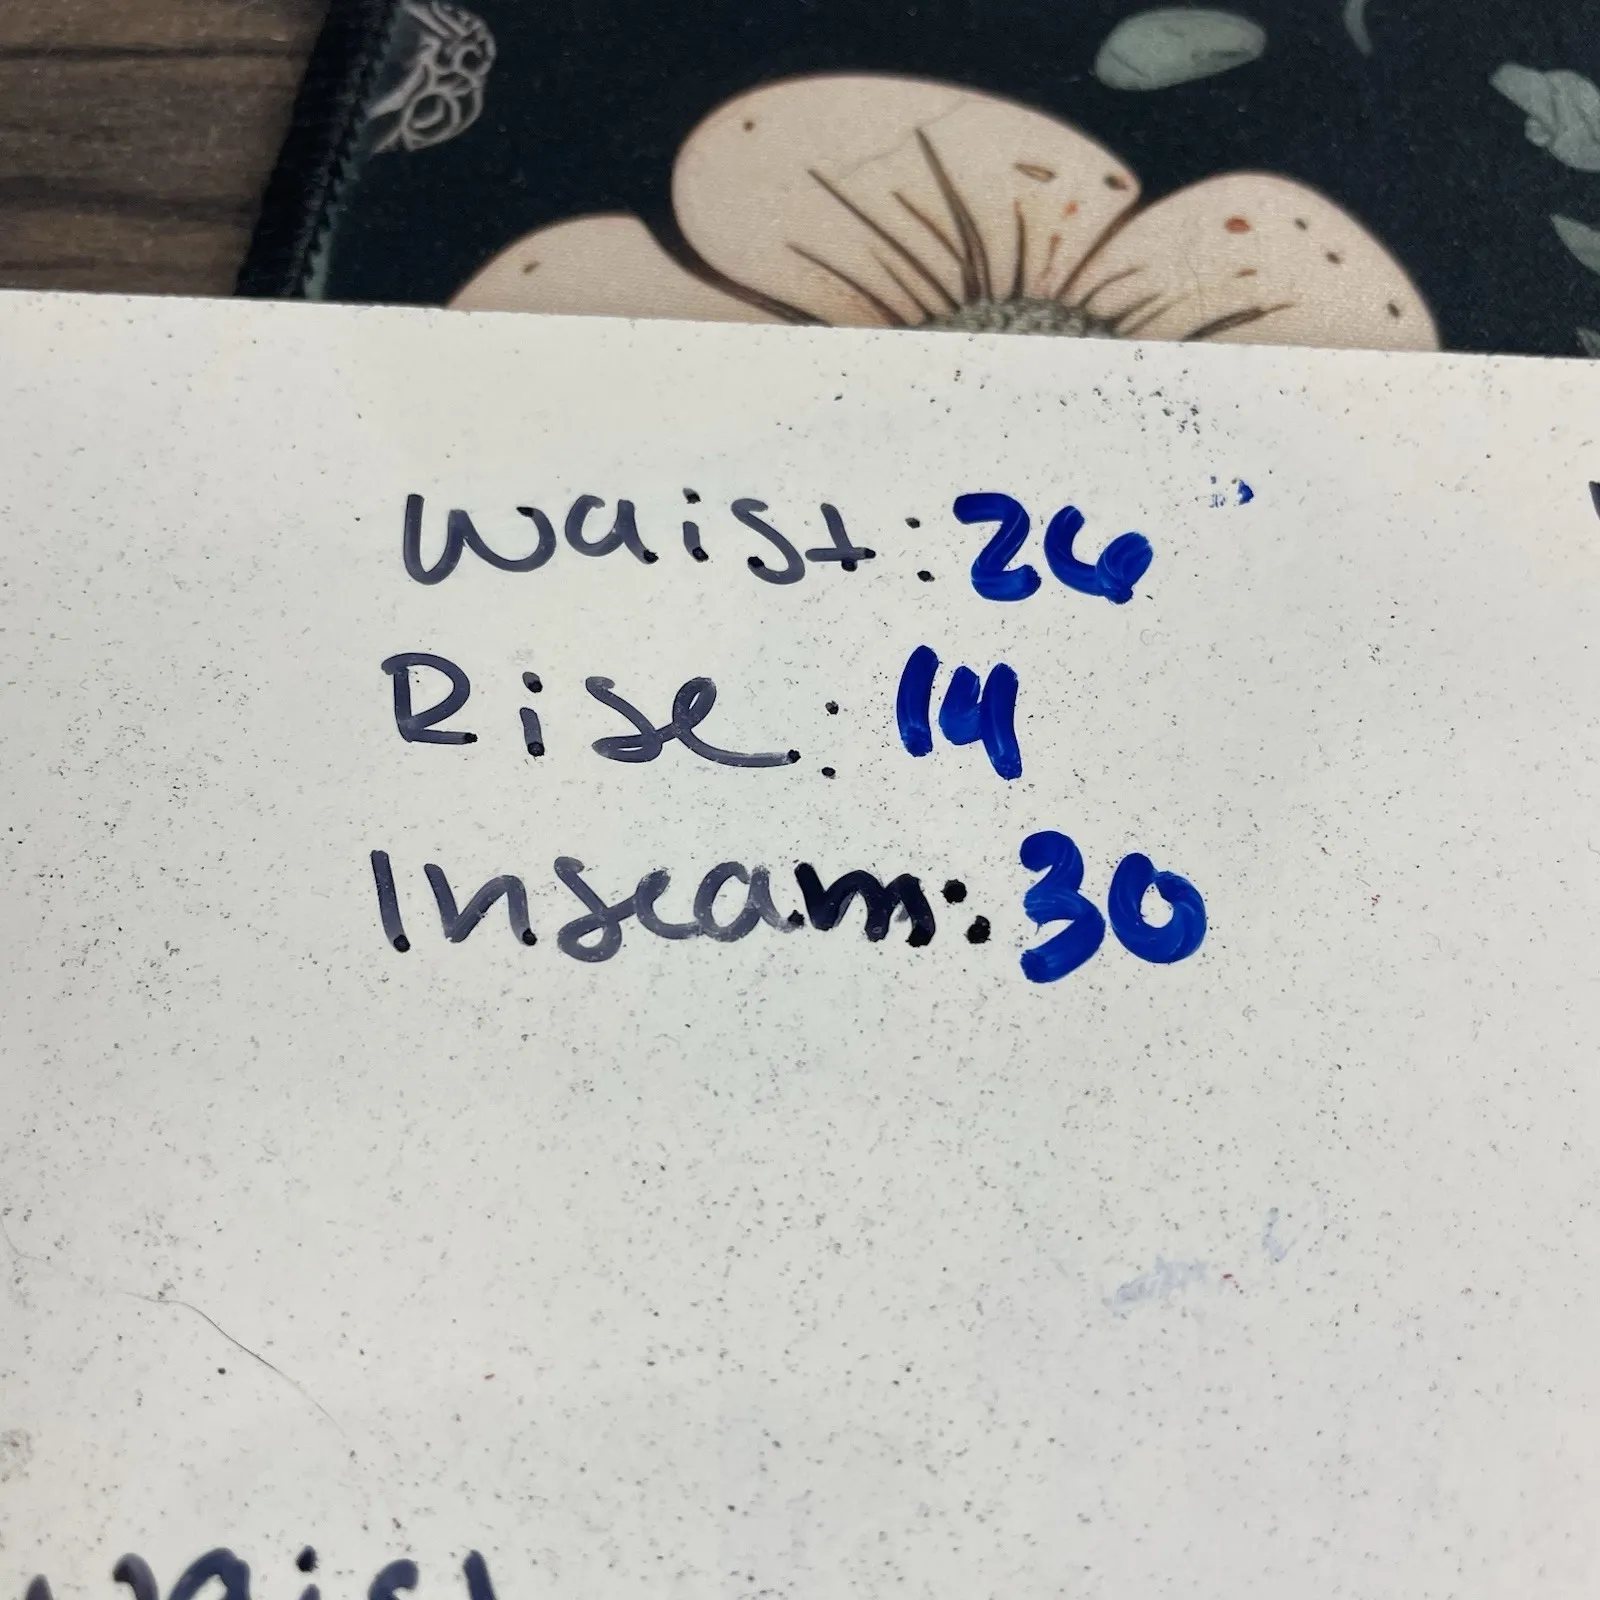 Waist: 26
Rise: 14
Inseam: 30
Waist